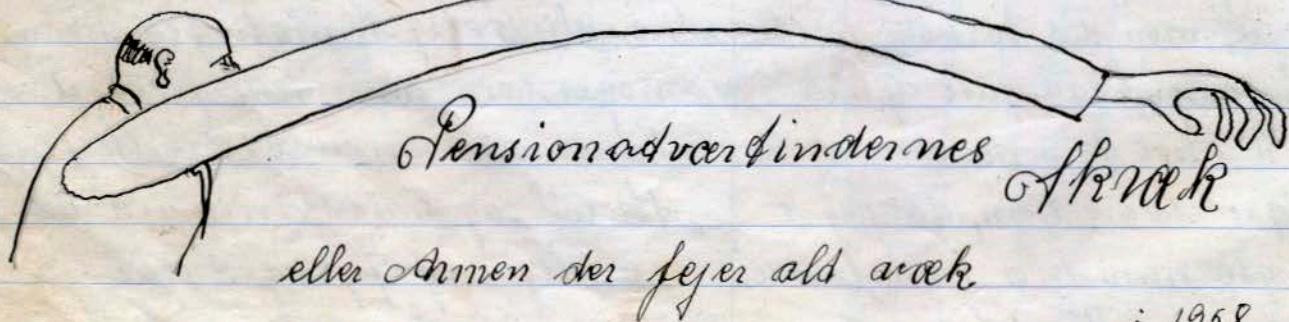 Pensionatværtindernes
Skræk
eller Armen der fejer alt væk
i 1968